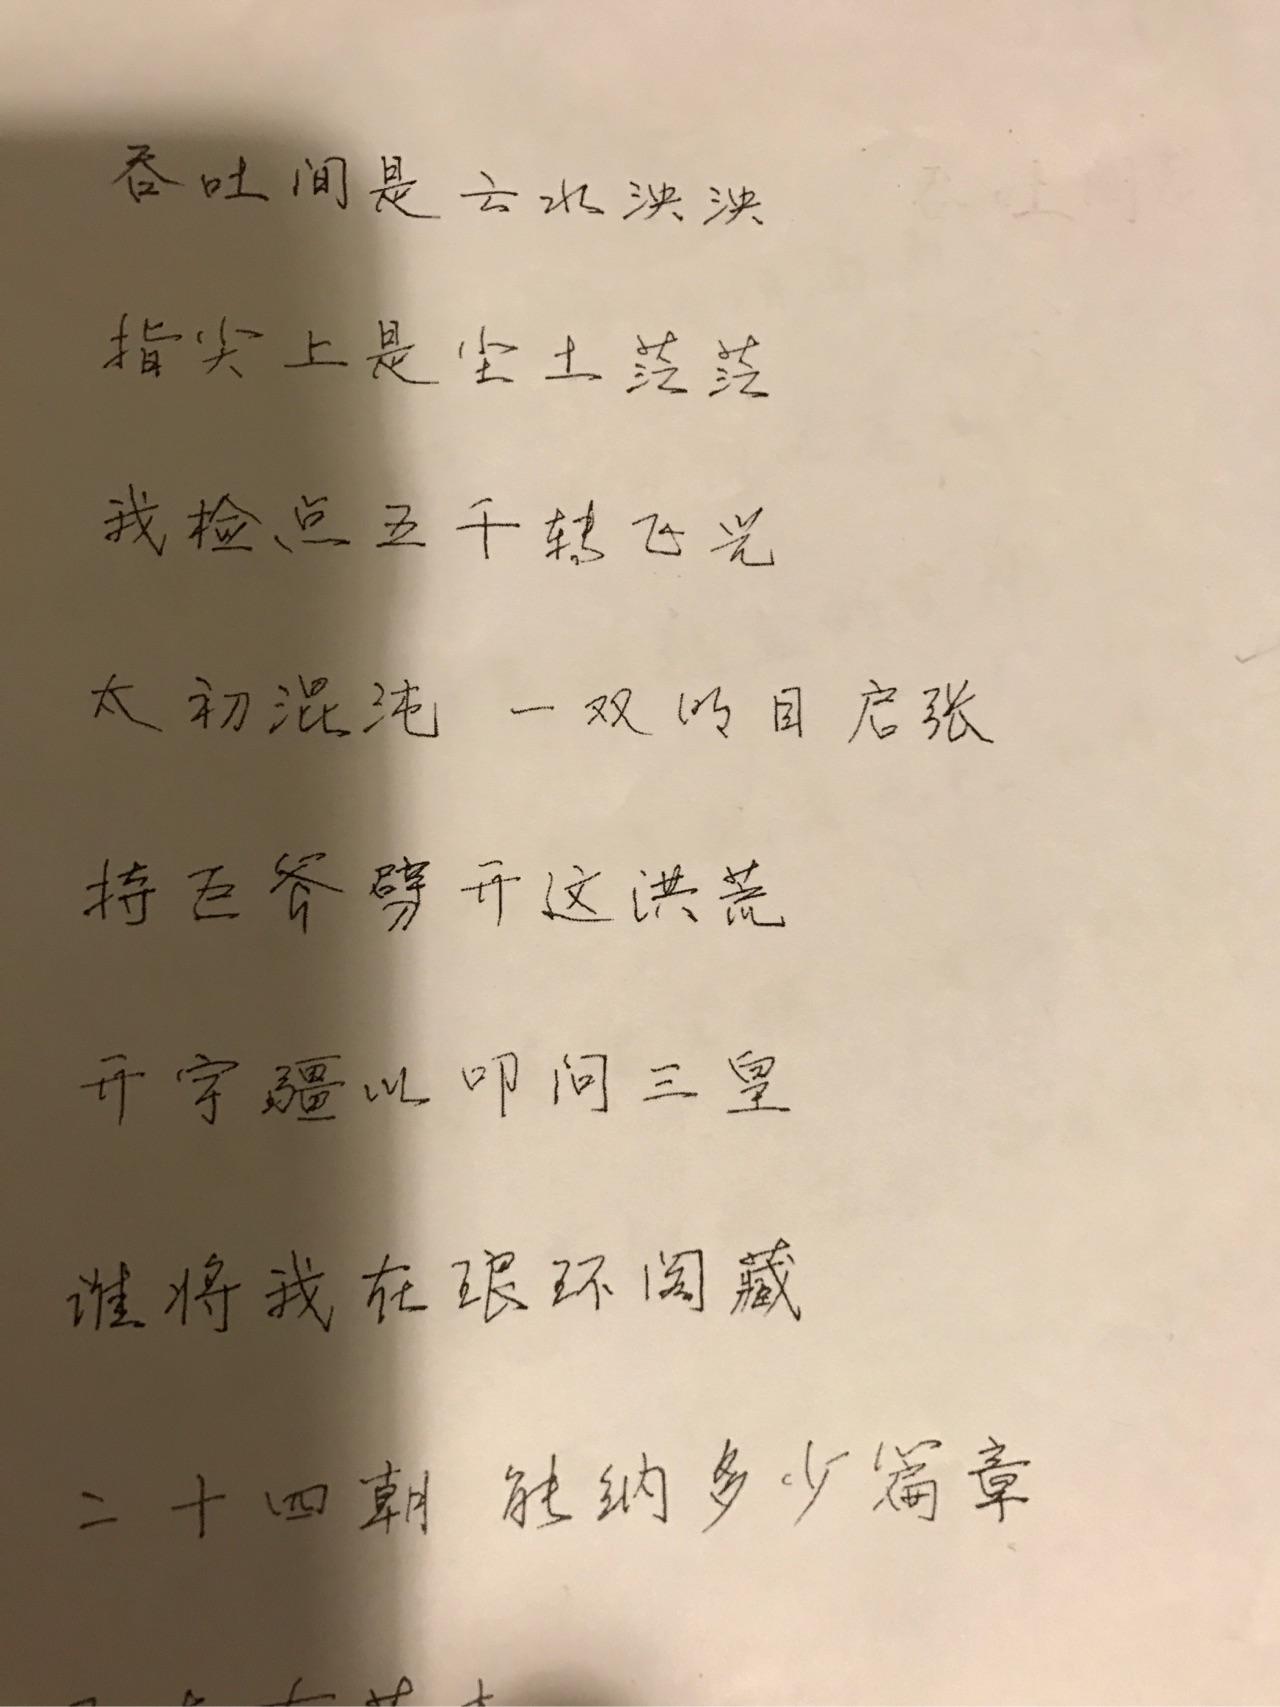 吞吐间是云水泱泱
指尖上是尘土茫茫
我检点五千转飞光
太初混沌 一双明目启张
持巨斧劈开这洪荒
开宇疆以叩问三皇
谁将我在琅环阁藏
二十四朝 能纳多少篇章